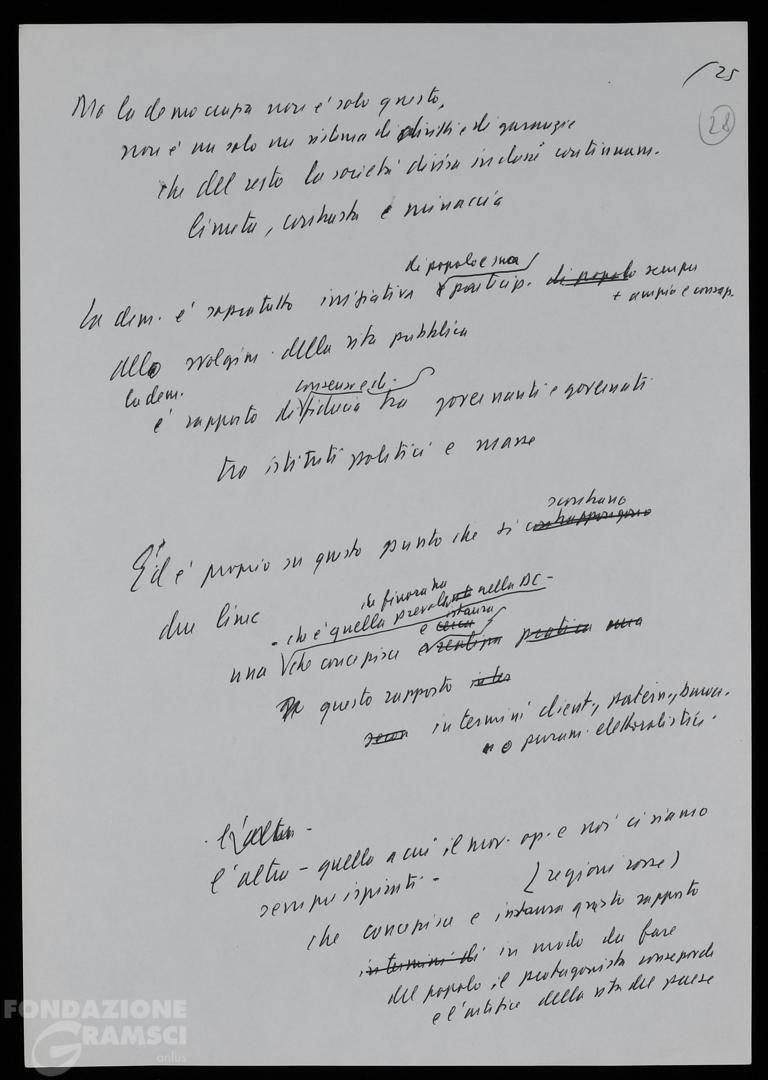 /25
28
Ma la democrazia non è solo questo,
non è un solo un sistema di diritti e di garanzie
che del resto la società divisa in classi continuam.
limita, contrasta e minaccia
di popolo e sua
La dem. è soprattutto iniziativa e particip. di popolo sempre
+ ampia e consap.
allo svolgim. della vita pubblica
la dem.
consenso e di
è rapporto di fiducia tra governanti e governati
tra istituti politici e masse
scontrano
Ed è proprio su questo punto che si contrappongono
due linee
che finora ha
- che è quella prevalente nella DC -
e cerca
instaura
una che concepisce e realizza pratica una
questo rapporto in ter
in termini client., paritein., buroc.
o puram. elettoralistici.
L'altra -
l'altra - quella a cui il mov. op. e noi ci siamo
sempre ispirati -
(regioni rosse)
che concepisce e instaura questo rapporto
in termini di in modo da fare
del popolo il protagonista consapevole
e l'artefice della vita del paese
FONDAZIONE
GRAMSCI
onlus